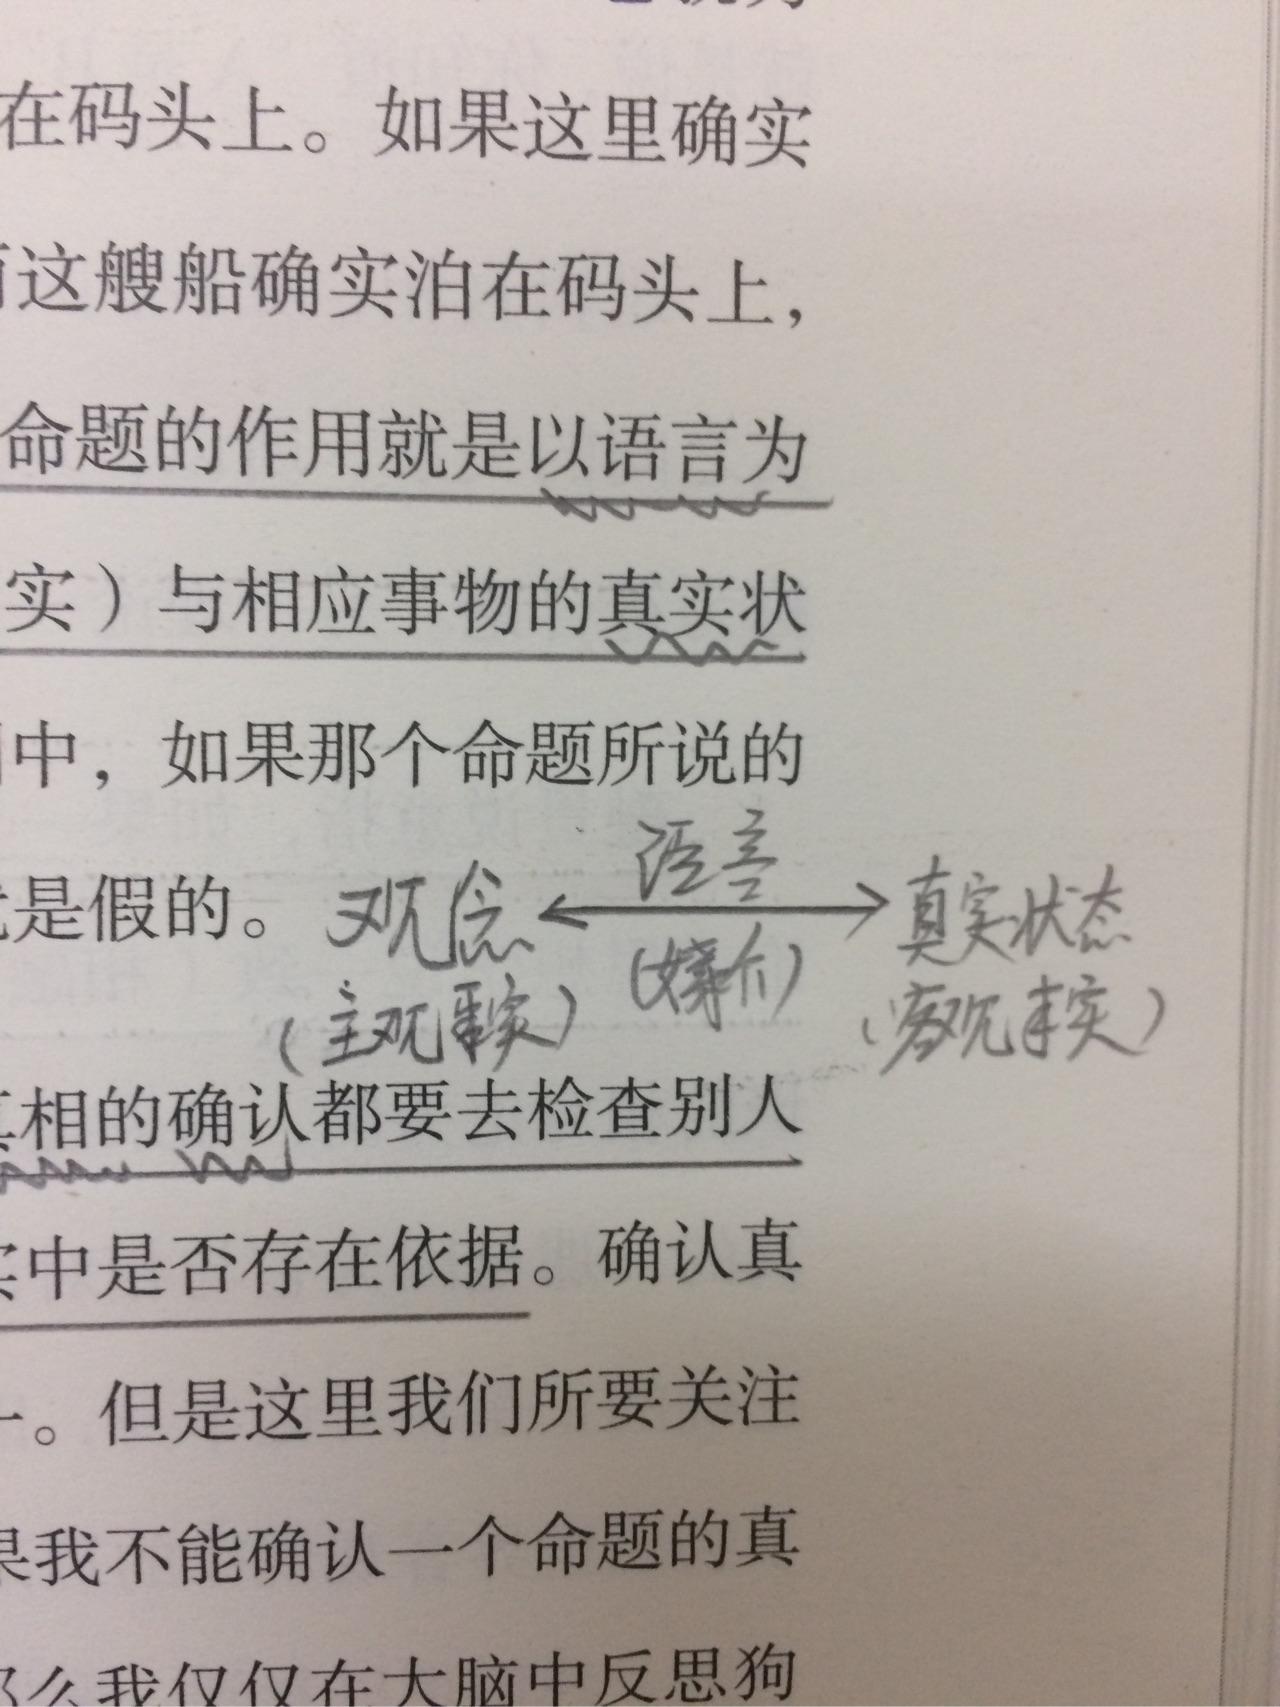 在码头上。如果这里确实
这艘船确实泊在码头上，
命题的作用就是以语言为
实）与相应事物的真实状
中，如果那个命题所说的
语言
是假的。 观念 ←→ 真实状态
（主观事实） （媒介） （客观事实）
真相的确认都要去检查别人
实中是否存在依据。确认真
。但是这里我们所要关注
果我不能确认一个命题的真
那么我仅仅在大脑中反思狗